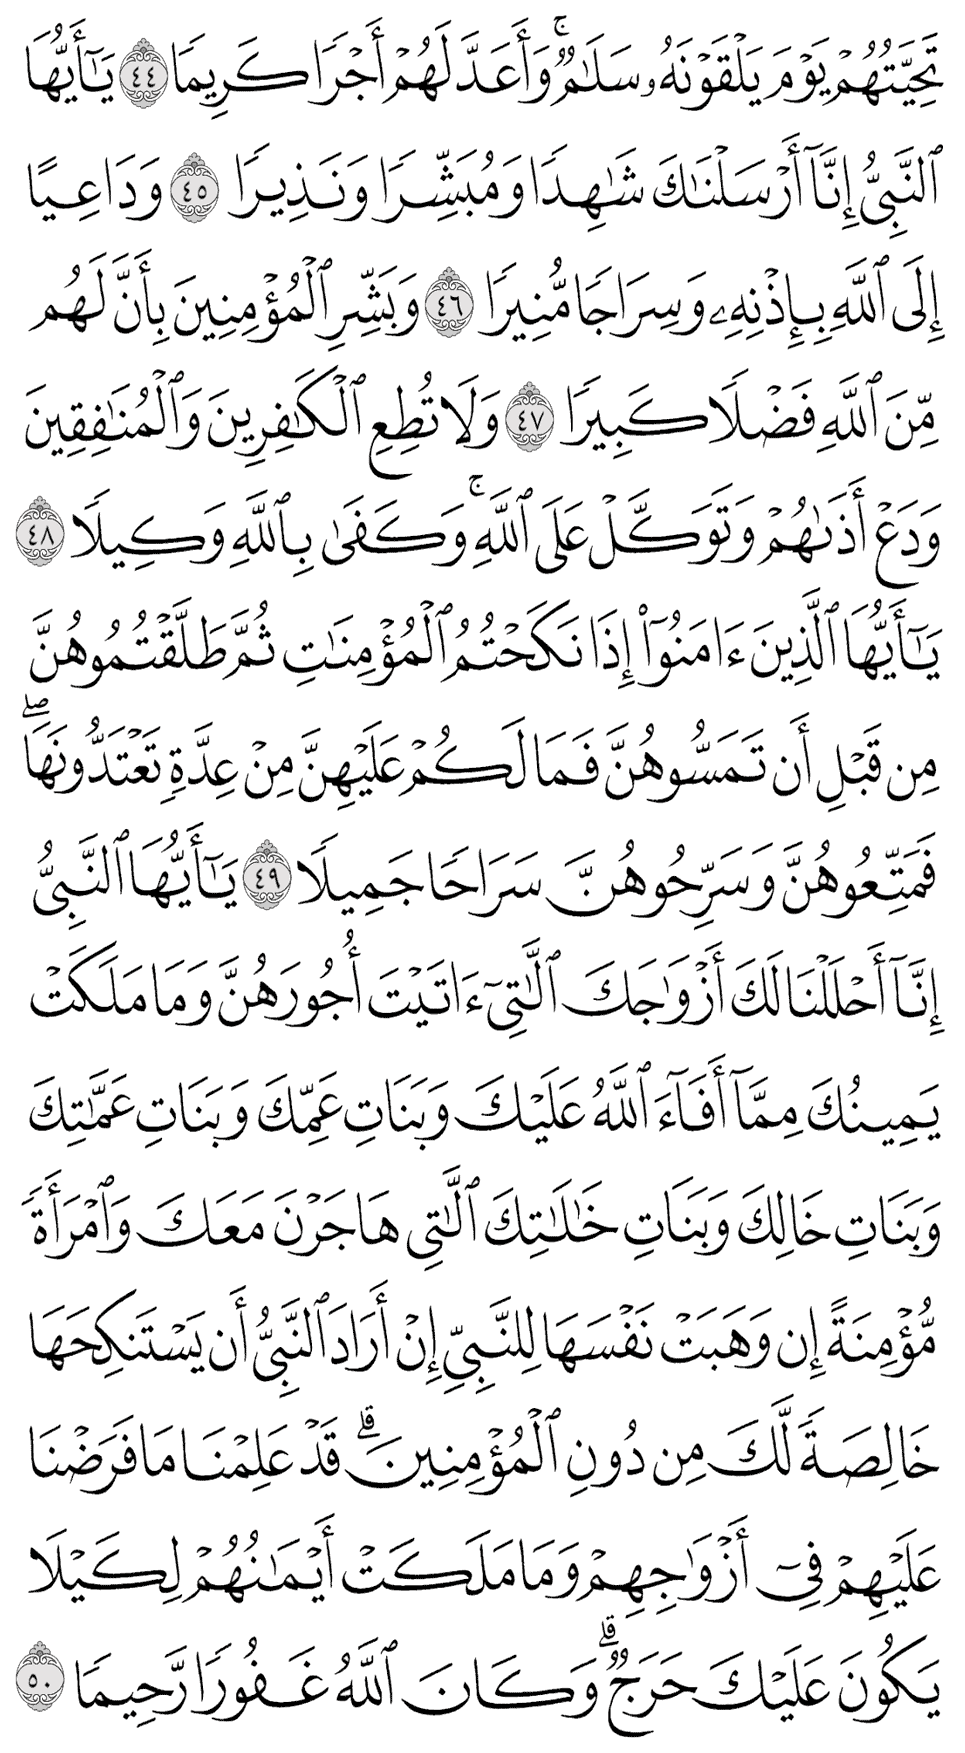 تَحِيَّتُهُمْ يَوْمَ يَلْقَوْنَهُۥ سَلَٰمٌۚ وَأَعَدَّ لَهُمْ أَجْرًا كَرِيمًا ٤٤ يَٰٓأَيُّهَا
ٱلنَّبِيُّ إِنَّآ أَرْسَلْنَٰكَ شَٰهِدًا وَمُبَشِّرًا وَنَذِيرًا ٤٥ وَدَاعِيًا
إِلَى ٱللَّهِ بِإِذْنِهِۦ وَسِرَاجًا مُّنِيرًا ٤٦ وَبَشِّرِ ٱلْمُؤْمِنِينَ بِأَنَّ لَهُم
مِّنَ ٱللَّهِ فَضْلًا كَبِيرًا ٤٧ وَلَا تُطِعِ ٱلْكَٰفِرِينَ وَٱلْمُنَٰفِقِينَ
وَدَعْ أَذَىٰهُمْ وَتَوَكَّلْ عَلَى ٱللَّهِۚ وَكَفَىٰ بِٱللَّهِ وَكِيلًا ٤٨
يَٰٓأَيُّهَا ٱلَّذِينَ ءَامَنُوٓا۟ إِذَا نَكَحْتُمُ ٱلْمُؤْمِنَٰتِ ثُمَّ طَلَّقْتُمُوهُنَّ
مِن قَبْلِ أَن تَمَسُّوهُنَّ فَمَا لَكُمْ عَلَيْهِنَّ مِنْ عِدَّةٍ تَعْتَدُّونَهَاۖ
فَمَتِّعُوهُنَّ وَسَرِّحُوهُنَّ سَرَاحًا جَمِيلًا ٤٩ يَٰٓأَيُّهَا ٱلنَّبِيُّ
إِنَّآ أَحْلَلْنَا لَكَ أَزْوَٰجَكَ ٱلَّٰتِىٓ ءَاتَيْتَ أُجُورَهُنَّ وَمَا مَلَكَتْ
يَمِينُكَ مِمَّآ أَفَآءَ ٱللَّهُ عَلَيْكَ وَبَنَاتِ عَمِّكَ وَبَنَاتِ عَمَّٰتِكَ
وَبَنَاتِ خَالِكَ وَبَنَاتِ خَٰلَٰتِكَ ٱلَّٰتِى هَاجَرْنَ مَعَكَ وَٱمْرَأَةً
مُّؤْمِنَةً إِن وَهَبَتْ نَفْسَهَا لِلنَّبِىِّ إِنْ أَرَادَ ٱلنَّبِىُّ أَن يَسْتَنكِحَهَا
خَالِصَةً لَّكَ مِن دُونِ ٱلْمُؤْمِنِينَۗ قَدْ عَلِمْنَا مَا فَرَضْنَا
عَلَيْهِمْ فِىٓ أَزْوَٰجِهِمْ وَمَا مَلَكَتْ أَيْمَٰنُهُمْ لِكَيْلَا
يَكُونَ عَلَيْكَ حَرَجٌۗ وَكَانَ ٱللَّهُ غَفُورًا رَّحِيمًا ٥٠